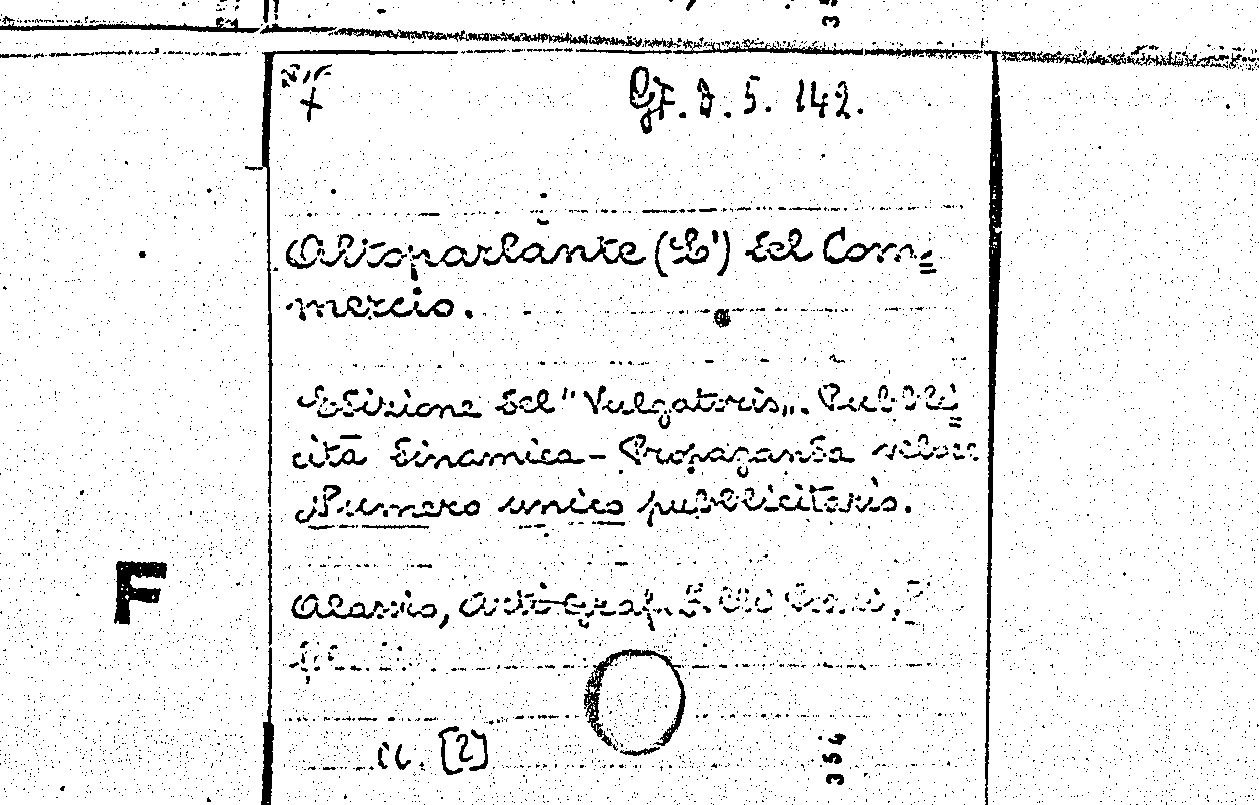 GF. D. 5. 142.
Altoparlante (L') del Com=
mercio.
Edizione del "Vulgatoris„. Pubbli=
cità dinamica - Propaganda veloce
Numero unico pubblicitario.
F
Alassio, Arti Graf.
n. [2]
354